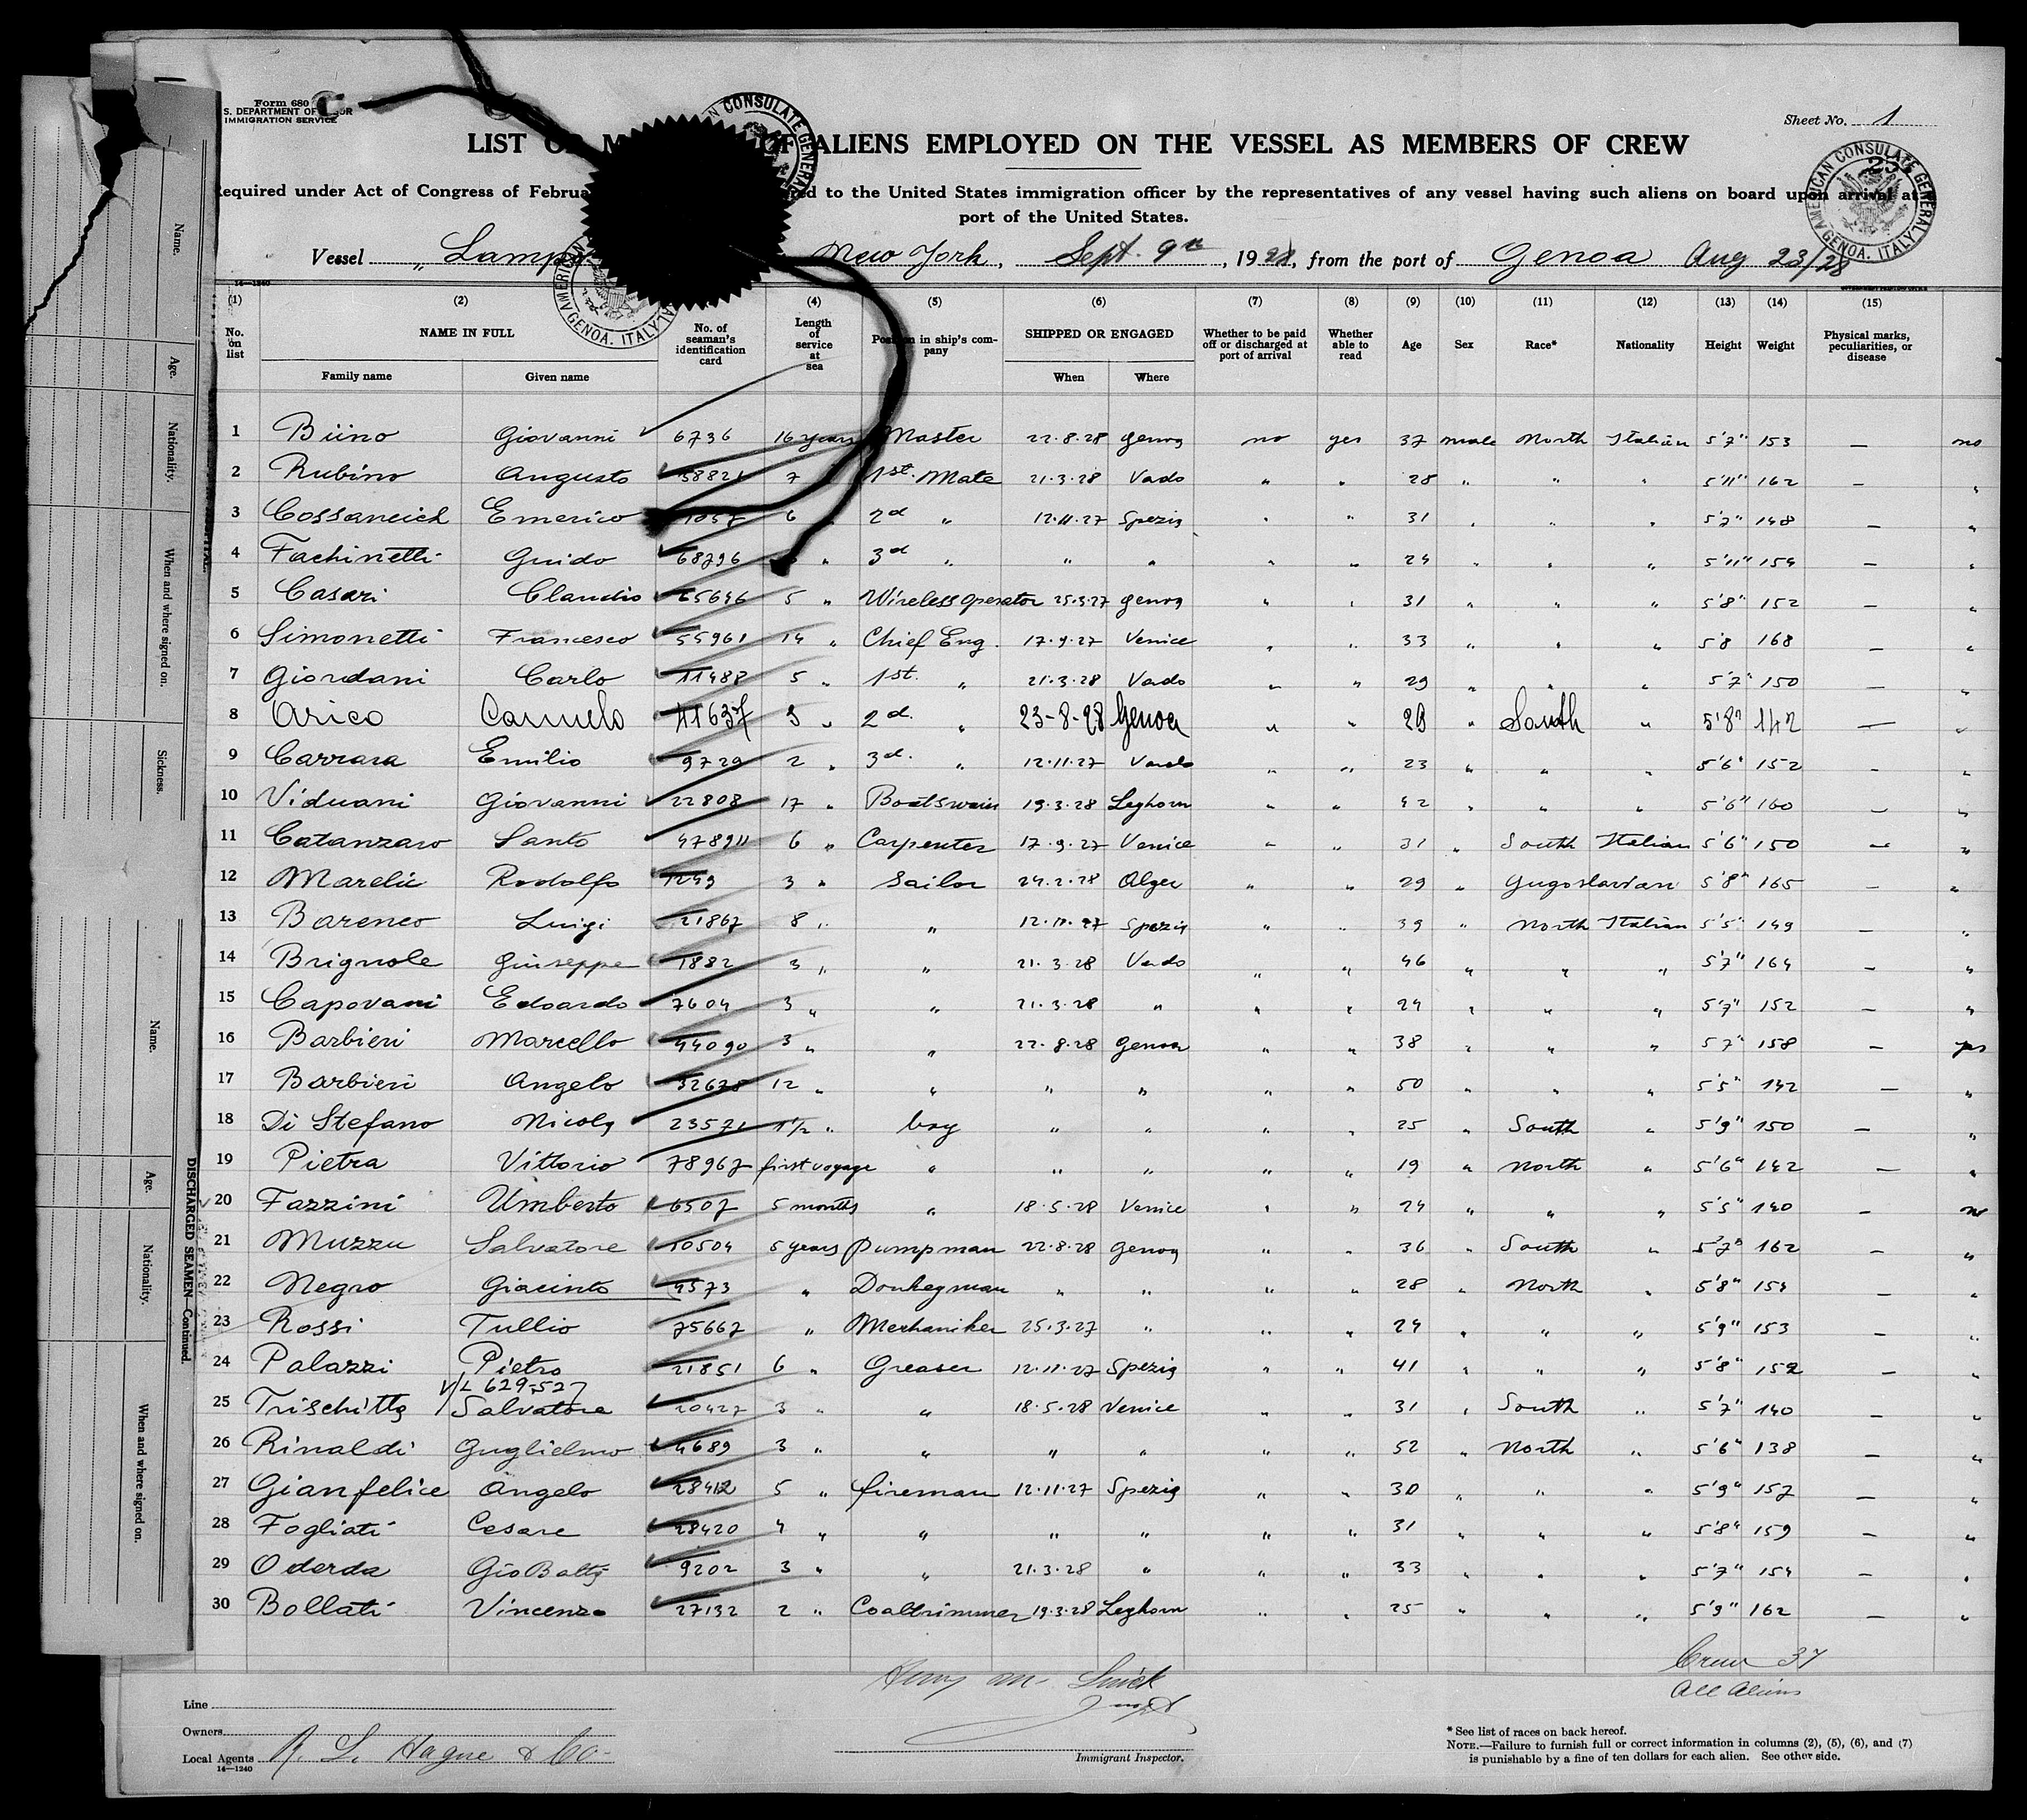 Form 680
S. DEPARTMENT OF LABOR
IMMIGRATION SERVICE
Sheet No. 1
LIST OR M OF ALIENS EMPLOYED ON THE VESSEL AS MEMBERS OF CREW
Required under Act of Congress of Februa ed to the United States immigration officer by the representatives of any vessel having such aliens on board upon arrival at
port of the United States.
AMERICAN CONSULATE GENERAL GENOA. ITALY
Vessel "Lampo New York, Sept. 9th, 1928, from the port of Genoa Aug 23/28
14—1240
(1) (2) (4) (5) (6) (7) (8) (9) (10) (11) (12) (13) (14) (15)
No. on list NAME IN FULL Family name Given name No. of seaman's identification card Length of service at sea Position in ship's company SHIPPED OR ENGAGED When Where Whether to be paid off or discharged at port of arrival Whether able to read Age Sex Race* Nationality Height Weight Physical marks, peculiarities, or disease
1 Biino Giovanni 6736 16 years Master 22.8.28 genoa no yes 37 male North Italian 5'7" 153 — no
2 Rubino Augusto 58821 7 " 1st. Mate 21.3.28 Vado " " 28 " " " 5'11" 162 — "
3 Cossancich Emerico 1057 6 " 2d " 12.11.27 Spezia " " 31 " " " 5'7" 148 — "
4 Fachinetti Guido 68796 " 3d " " " " " 24 " " " 5'11" 154 — "
5 Casari Claudio 25646 5 " Wireless operator 25.3.27 genoa " " 31 " " " 5'8" 152 — "
6 Simonetti Francesco 55961 14 " Chief Eng. 17.9.27 Venice " " 33 " " " 5'8 168 — "
7 Giordani Carlo 11488 5 " 1st. " 21.3.28 Vado " " 29 " " " 5'7" 150 — "
8 Arico Carmelo 41637 3 " 2d. " 23-8-28 Genoa " " 29 " South " 5'8" 142 — "
9 Carrara Emilio 9729 2 " 3d. " 12.11.27 Vado " " 23 " " " 5'6" 152 — "
10 Viduani Giovanni 22808 17 " Boatswain 19.3.28 Leghorn " " 42 " " " 5'6" 160 — "
11 Catanzaro Santo 478911 6 " Carpenter 17.9.27 Venice " " 31 " South Italian 5'6" 150 — "
12 Marelic Rodolfo 1249 3 " Sailor 24.2.28 Alger " " 29 " Yugoslavian 5'8" 165 — "
13 Bareneo Luigi 21867 8 " " 12.11.27 Spezia " " 39 " North Italian 5'5" 149 — "
14 Brignole Giuseppe 1882 3 " " 21.3.28 Vado " " 46 " " " 5'7" 164 — "
15 Capovani Edoardo 7604 3 " " 21.3.28 " " " 24 " " " 5'7" 152 — "
16 Barbieri Marcello 44090 3 " " 22.8.28 Genoa " " 38 " " " 5 7" 158 — yes
17 Barbieri Angelo 32628 12 " " " " " " 50 " " " 5'5" 142 — "
18 Di Stefano Nicola 23571 1 1/2 " boy " " " " 25 " South " 5'9" 150 — "
19 Pietra Vittorio 78967 first voyage " " " " " 19 " North " 5'6" 142 — "
20 Fazzini Umberto 6507 5 months " 18.5.28 Venice " " 24 " " " 5'5" 140 — no
21 Muzzu Salvatore 10504 5 years Pumpman 22.8.28 genoa " " 36 " South " 5'7" 162 — "
22 Negro Giacinto 4573 " Donkeyman " " " " 28 " North " 5'8" 154 — "
23 Rossi Tullio 75667 " Merhaniker 25.3.27 " " " 24 " " " 5'9" 153 — "
24 Palazzi Pietro 21851 6 " Greaser 12.11.27 Spezia " " 41 " " " 5'8" 152 — "
V/L 629-527
25 Trischitta Salvatore 20427 3 " " 18.5.28 Venice " " 31 " South " 5'7" 140 — "
26 Rinaldi Guglielmo 4689 3 " " " " " " 52 " North " 5'6" 138 — "
27 Gianfelice Angelo 28412 5 " fireman 12.11.27 Spezia " " 30 " " " 5'9" 157 — "
28 Fogliati Cesare 28420 4 " " " " " " 31 " " " 5'8" 159 — "
29 Oderda Gio Batta 9202 3 " " 21.3.28 " " " 33 " " " 5'7" 154 — "
30 Bollati Vincenzo 27132 2 " Coaltrimmer 19.3.28 Leghorn " " 25 " " " 5'9" 162 — "
Crew 37
All Aliens
Line
Owners
Local Agents R. L. Hague & Co-
14—1240
Immigrant Inspector.
* See list of races on back hereof.
NOTE.—Failure to furnish full or correct information in columns (2), (5), (6), and (7)
is punishable by a fine of ten dollars for each alien. See other side.
Name.
Age.
Nationality.
When and where signed on.
Sickness.
Name.
Age.
Nationality.
When and where signed on.
DISCHARGED SEAMEN Continued.